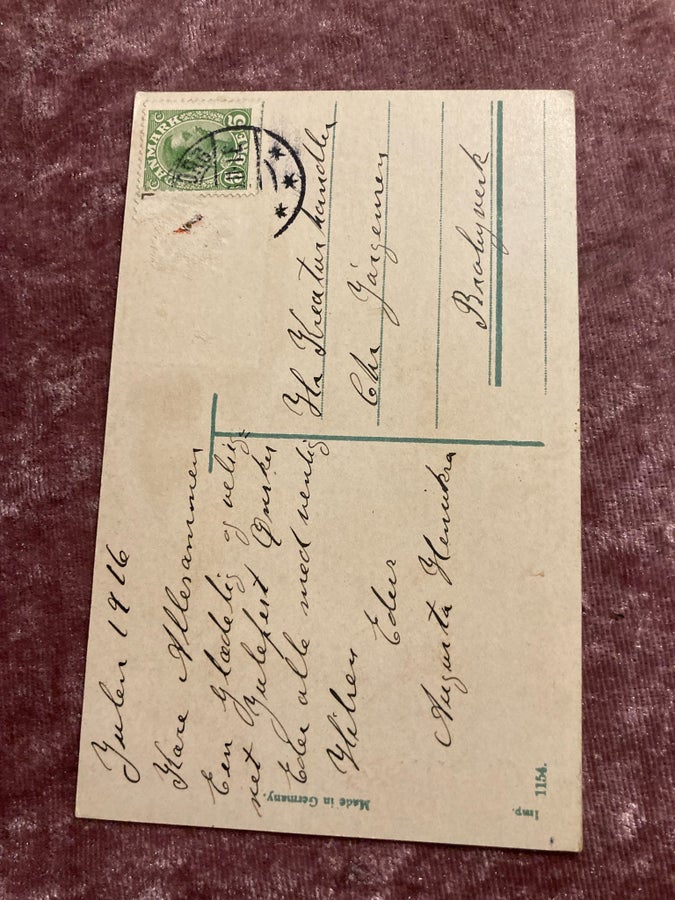 Julen 1916
Kære Allesammen
En glædelig og velsig-
net Julefest Ønskes
Eder alle med venlig
Hilsen Eders
Augusta Henriksen
DANMARK
5 ØRE
Hr Kreaturhandler
Chr Jørgensen
Brobyværk
Made in Germany.
Imp. 1154.